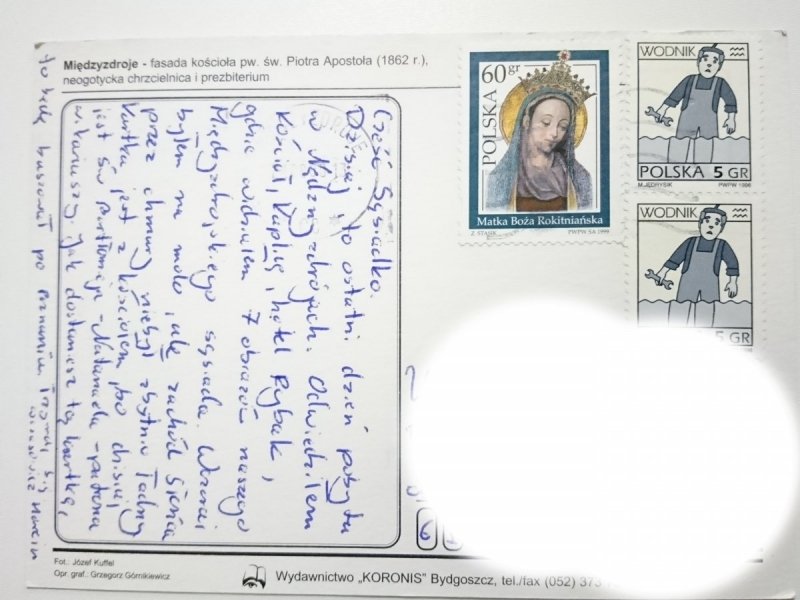 Międzyzdroje - fasada kościoła pw. św. Piotra Apostoła (1862 r.),
neogotycka chrzcielnica i prezbiterium
Cześć Sąsiadko.
Dzisiaj to ostatni dzień pobytu
w Nędznyzdrojach. Odwiedziłem
Kościół, Kaplicę, hotel Rybak,
gdzie widziałem 7 obrazów naszego
Międzyzdrojskiego sąsiada. Wczoraj
byłem na molo, ale zachód słońca
przez chmury nie był zbytnio ładny
Kartka jest z kościołem, bo dzisiaj
jest św Bartłomieja - Natanaela - patrona
w. Jak dostaniesz tą kartkę,
to będę buszował po Poznaniu. Trzymaj się
Marcin
60 gr
POLSKA
Matka Boża Rokitniańska
Z. STASIK PWPW SA 1999
WODNIK
POLSKA 5 GR
M.JĘDRYSIK PWPW 1996
WODNIK
5 GR
Fot.: Józef Kuffel
Opr. graf.: Grzegorz Górnikiewicz
Wydawnictwo „KORONIS” Bydgoszcz, tel./fax (052) 373